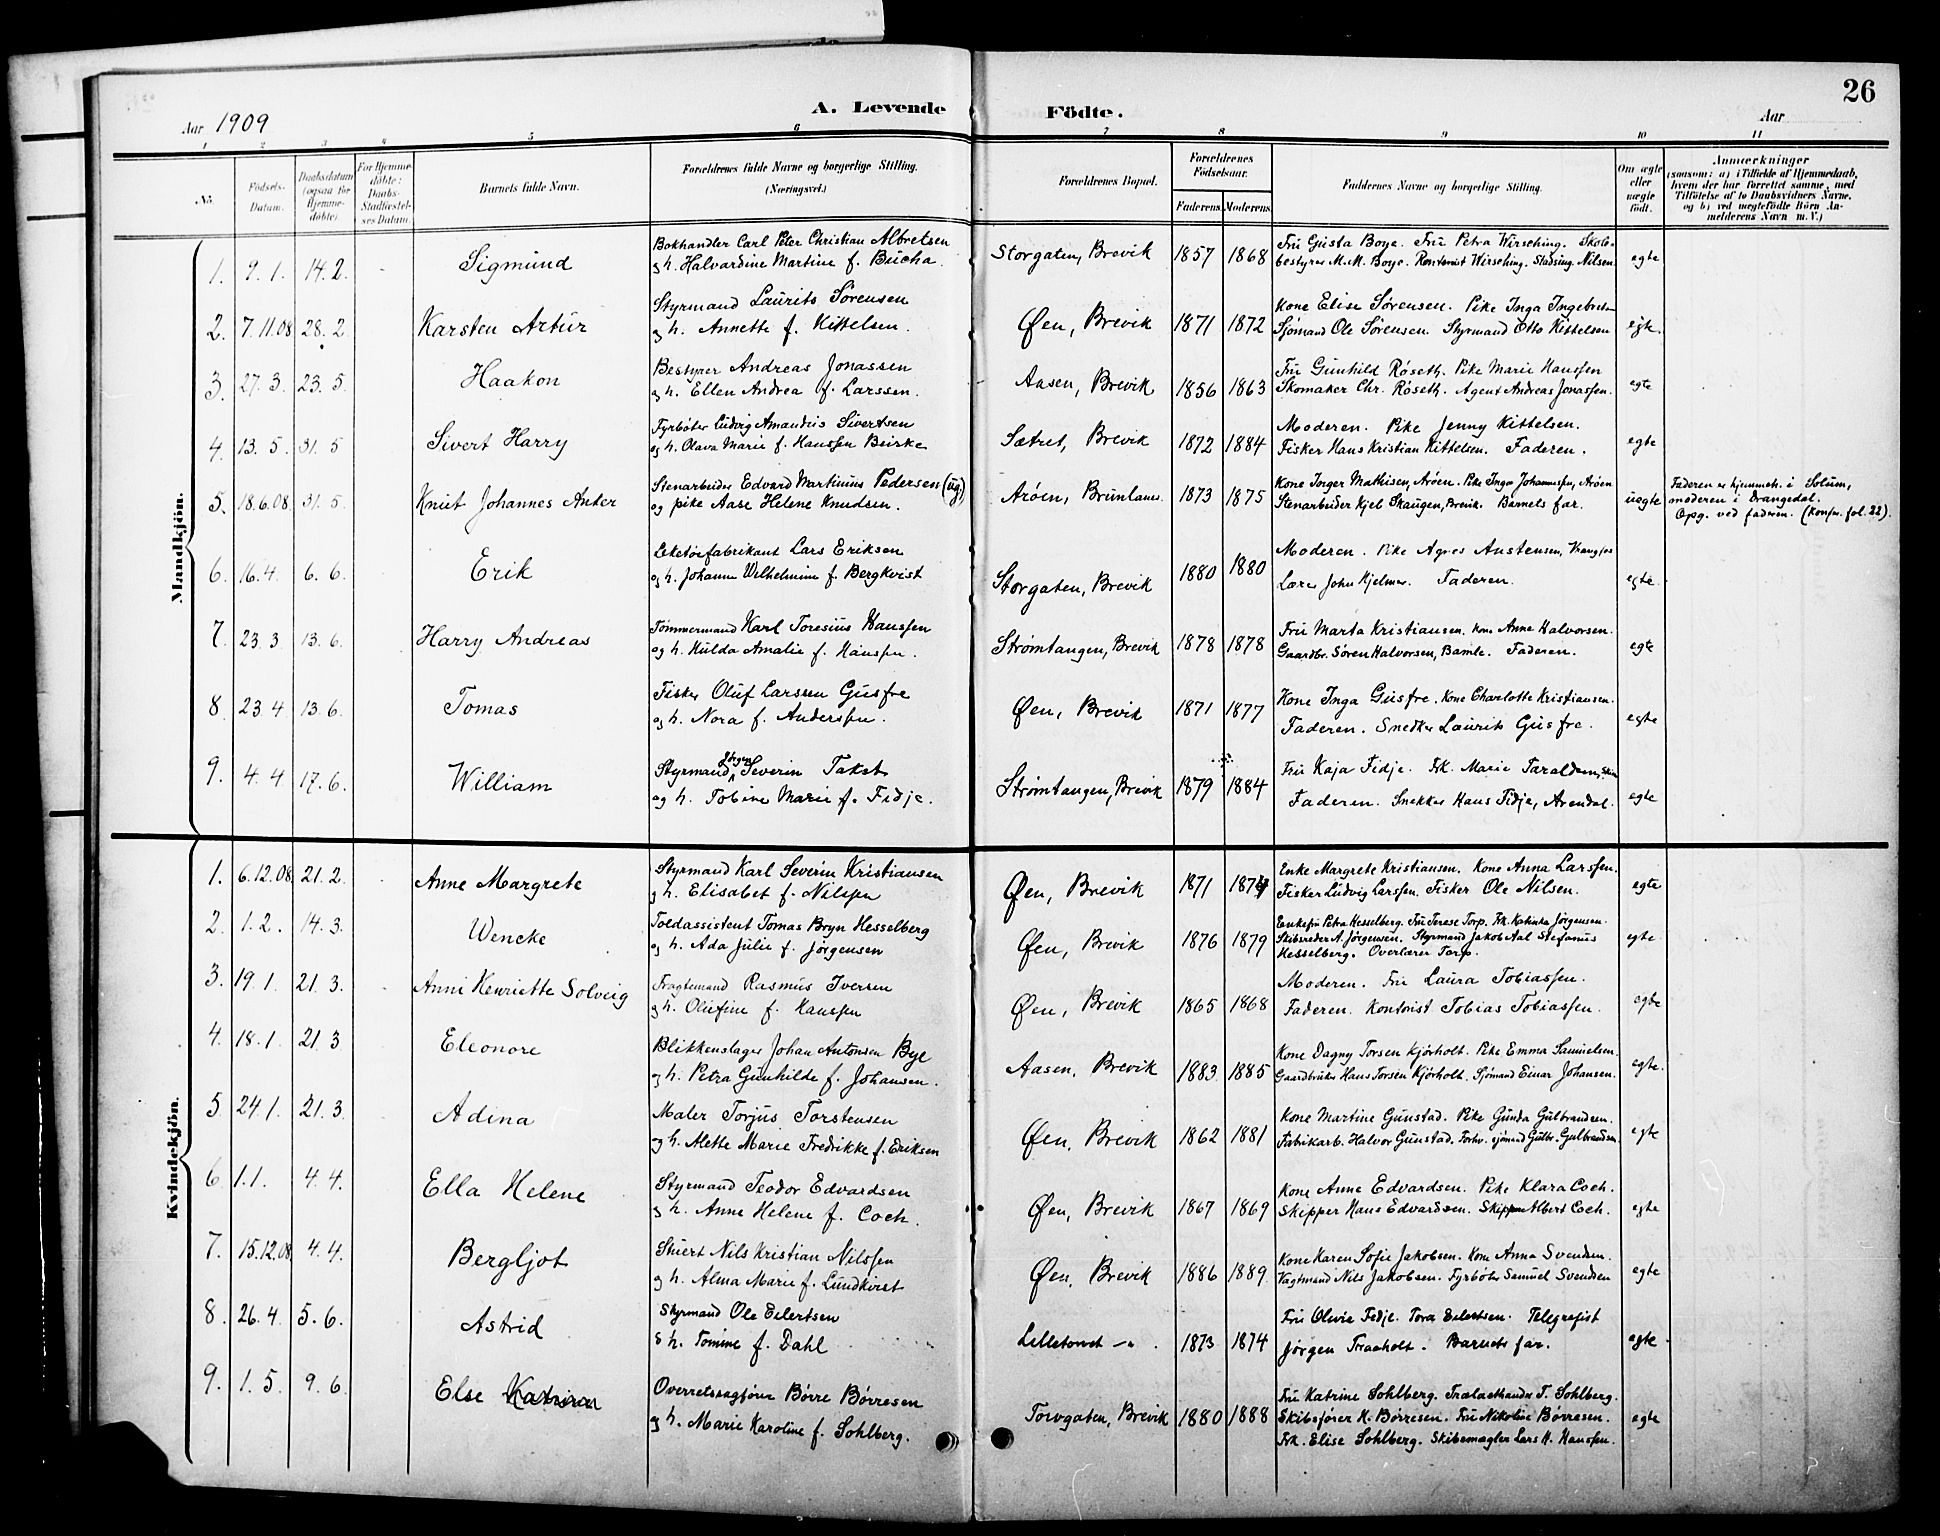 26
Aar 1909
A. Levende Födte.
Aar
1 2 3 4 5 6 7 8 9 10 11
No. Födsels-Datum. Daabsdatum (ogsaa for Hjemmedöbte). For Hjemmedöbte: Daabs-Stadfæstelses Datum. Barnets fulde Navn. Forældrenes fulde Navne og borgerlige Stilling. (Næringsvei.) Forældrenes Bopæl. Forældrenes Födselsaar. Faderens Moderens Faddernes Navne og borgerlige Stilling. Om ægte eller uægte födt. Anmærkninger (saasom: a) i Tilfælde af Hjemmedaab, hvem der har forrettet samme, med Tilföielse af to Daabsvidners Navne, og b) ved uægtefödte Börn Anmelderens Navn m. V.)
Mandkjön.
1. 9. 1. 14. 2. Sigmund
Bokhandler Carl Peter Christian Albretsen
og h. Halvardine Martine f. Bucha
Storgaten, Brevik 1857 1868
Fru Gusta Boye. Fru Petra Wirsching. Skole-
bestyrer M. M. Boye. Kontorist Wirsching. Stadsing. Nilsen.
egte
2. 7. 11. 08 28. 2. Karsten Artur
Styrmand Laurits Sørensen
og h. Annette f. Kittelsen.
Øen, Brevik 1871 1872
Kone Elise Sørensen. Pike Inga Ingebretsen
Sjømand Ole Sørensen. Styrmand Otto Kittelsen
egte.
3. 27. 3. 23. 5. Haakon
Bestyrer Andreas Jonassen
og h. Ellen Andrea f. Larssen.
Aasen, Brevik 1856 1863
Fru Gunhild Røseth. Pike Marie Hanssen
Skomaker Chr. Røseth. Agent Andreas Jonassen.
egte
4. 13. 5. 31. 5 Sivert Harry
Fyrbøter Ludvig Amandus Sivertsen
og h. Olava Marie f. Hanssen Buske
Sætret, Brevik 1872 1884
Moderen. Pike Jenny Kittelsen.
Fisker Hans Kristian Kittelsen. Faderen.
egte
5. 18. 6. 08 31. 5. Knut Johannes Anker
Stenarbeider Edvard Martinius Pedersen (ug.)
og pike Aase Helene Knudsen.
Arøen, Brunlanes 1873 1875
Kone Inger Mathisen, Arøen. Pike Inga Johannessen, Arøen
Stenarbeider Kjel Skaugen, Brevik. Barnets far.
uegte
Faderen er hjemmeh. i Solum,
moderen i Drangedal.
Opg. ved faderen. (konfr. fol. 22).
6. 16. 4. 6. 6. Erik
Leketøifabrikant Lars Eriksen
og h. Johanne Wilhelmine f. Bergkvist
Storgaten, Brevik 1880 1880
Moderen. Pike Agnes Austensen,
Lærer John Hjelmer. Faderen.
egte.
7. 23. 3. 13. 6. Harry Andreas
Tømmermand Karl Toresius Hanssen
og h. Hulda Amalie f. Hanssen.
Strømtangen, Brevik 1878 1878
Fru Marta Kristiansen. Kone Anne Halvorsen.
Gaardbr. Søren Halvorsen, Bamle. Faderen.
egte
8. 23. 4 13. 6. Tomas
Fisker Oluf Larssen Gusfre
og h. Nora f. Anderssen.
Øen, Brevik 1871 1877
Kone Inga Gusfre. Kone Charlotte Kristiansen.
Faderen. Snedker Laurits Gusfre.
egte
9. 4. 4 17. 6. William
Styrmand Jørgen Severin Takst
og h. Tobine Marie f. Fidje.
Strømtangen, Brevik 1879 1884
Fru Kaja Fidje. Frk. Marie Taraldsen,
Faderen. Snekker Hans Fidje, Arendal.
egte
Kvindekjön.
1. 6. 12. 08 21. 2. Anne Margrete
Styrmand Karl Severin Kristiansen
og h. Elisabet f. Nilssen
Øen, Brevik 1871 1874
Enke Margrete Kristiansen. Kone Anna Larssen.
Fisker Ludvig Larssen. Fisker Ole Nilsen.
egte
2. 1. 2. 14. 3. Wencke
Toldassistent Tomas Bryn Hesselberg
og h. Ada Julie f. Jörgensen
Øen, Brevik 1876 1879
Enkefru Petra Hesselberg. Fru Terese Torp. Frk. Katinka Jörgensen.
Skibsreder A. Jörgensen. Styrmand Jakob Aal Stefanus
Hesselberg. Overlærer Torp.
egte
3. 19. 1. 21. 3. Anni Henriette Solveig
Fragtemand Rasmus Iversen
og h. Olufine f. Hanssen
Øen, Brevik 1865 1868
Moderen. Fru Laura Tobiassen.
Faderen. Kontorist Tobias Tobiassen.
egte
4. 18. 1. 21. 3 Eleonore
Blikkenslager Johan Antonsen Bye
og h. Petra Gunhilde f. Johansen.
Aasen, Brevik 1883. 1885
Kone Dagny Torsen Kjörholt. Pike Emma Samuelsen.
Gaardbruker Hans Torsen Kjörholt. Sjömand Einar Johansen.
egte.
5 24. 1. 21. 3. Adina
Maler Torjus Torstensen
og h. Alette Marie Fredrikke f. Eriksen
Øen, Brevik 1862 1881
Kone Martine Gunstad. Pike Gunda Gulbrandsen.
Fabrikarb. Halvor Gunstad. Forhv. sjömand Gulbr. Gulbrandsen
egte
6 1. 1. 4. 4. Ella Helene
Styrmand Teodor Edvardsen
og h. Anne Helene f. Coch.
Øen, Brevik 1867 1869
Kone Anne Edvardsen. Pike Klara Coch.
Skipper Hans Edvardsen. Skipper Albert Coch.
egte
7. 15. 12. 08 4. 4. Bergljot
Stuert Nils Kristian Nilssen
og h. Alma Marie f. Lundkvist
Øen, Brevik 1886 1889.
Kone Karen Sofie Jakobsen. Kone Anna Svendsen.
Vagtmand Nils Jakobsen. Fyrbøter Samuel Svendsen
egte
8. 26. 4. 5. 6. Astrid
Styrmand Ole Eilertsen
& h. Tomine f. Dahl
Lilletorvet —"— . 1873 1874
Fru Olivie Fidje. Tora Eilertsen. Telegrafist
Jörgen Traaholt. Barnets far.
egte
9. 1. 5. 9. 6. Else Katrine
Overretssagförer Börre Börresen
og h. Marie Karoline f. Sohlberg.
Torvgaten, Brevik 1880 1888
Fru Katrine Sohlberg. Trælasthandler T. Sohlberg.
Skibsförer K. Börresen. Fru Nikoline Börresen.
Frk. Elise Sohlberg. Skibsmægler Lars H. Hanssen.
egte